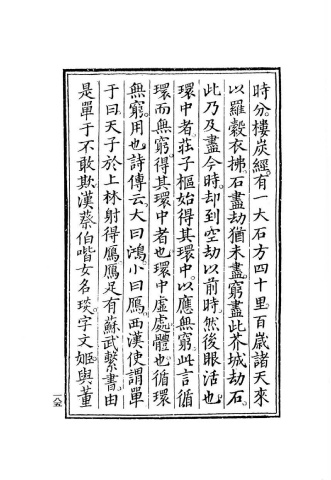 時分。樓炭經。有一大石。方四十里。百歲諸天來
以羅縠衣拂。石盡劫猶未盡。窮盡此芥城劫石。
此乃及盡今時。却到空劫以前時。然後眼活也。
環中者。莊子樞始得其環中。以應無窮。此言循
環而無窮。得其環中者也。環中虛處體也。循環
無窮。用也。詩傳云。大曰鴻。小曰鴈。西漢使謂單
于曰。天子於上林射得鴈。鴈足有蘇武繫書。由
是單于不敢欺漢。蔡伯喈女名琰。字文姬。與董